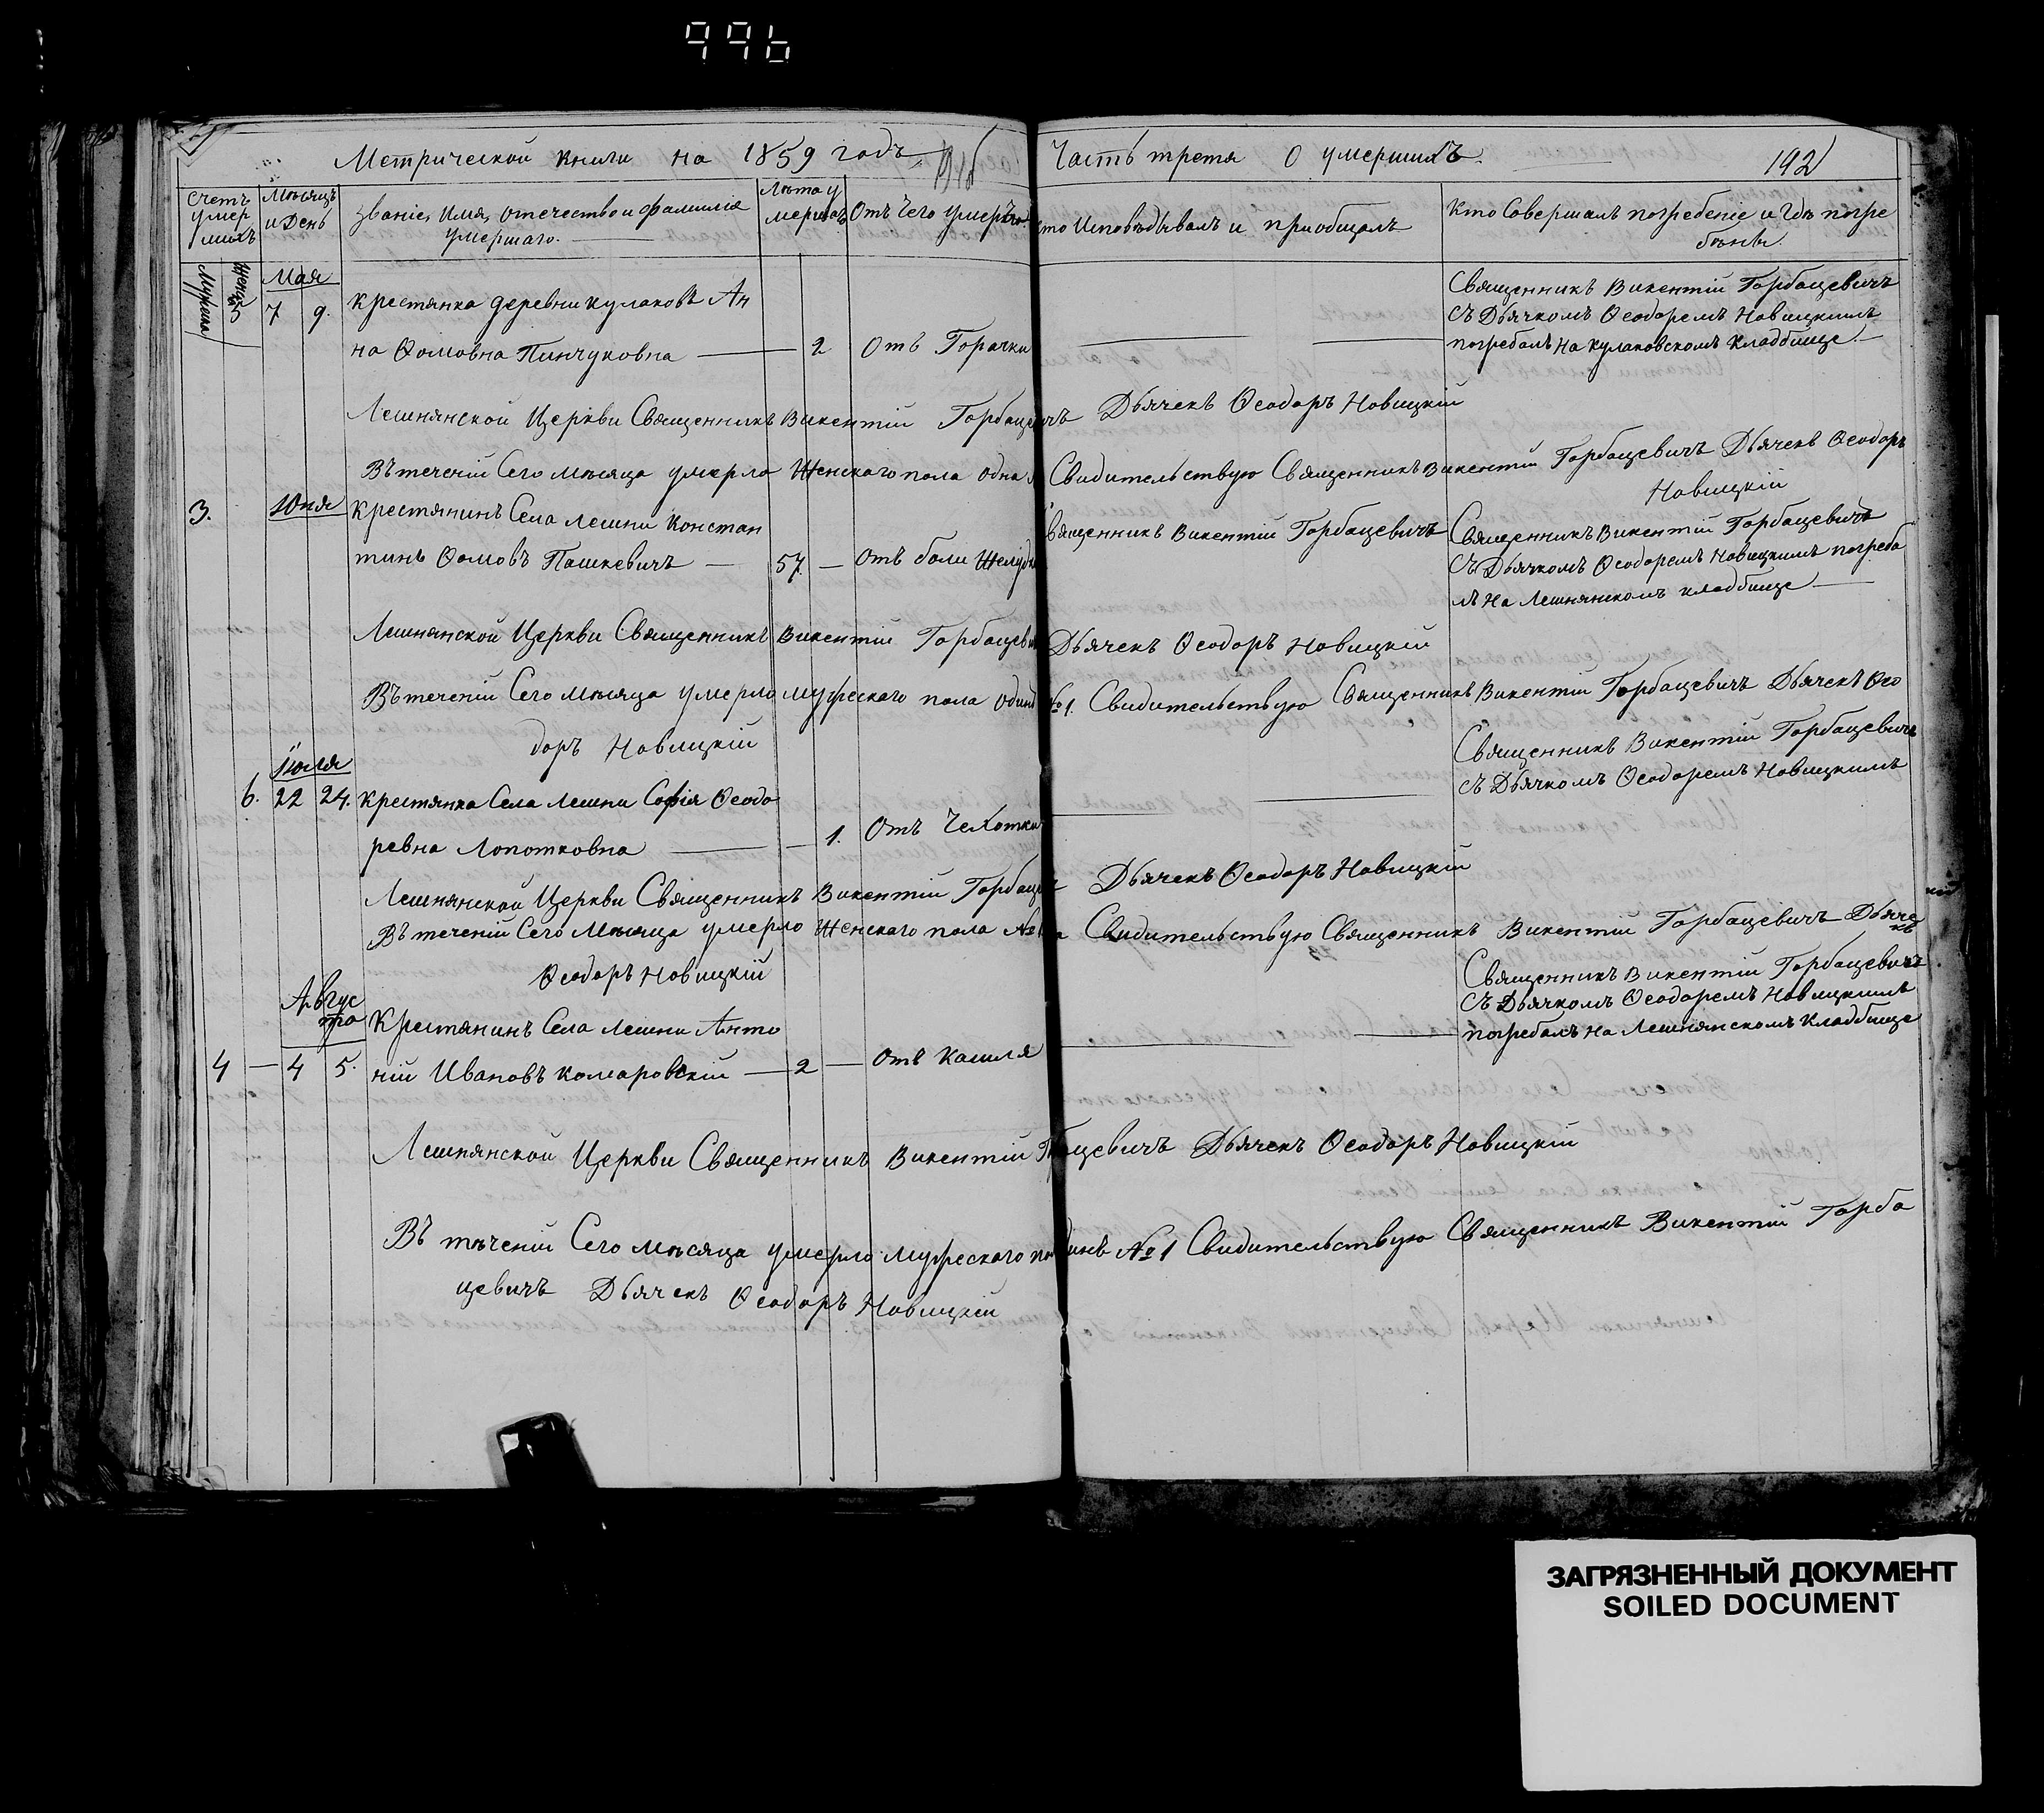 996
Метрической книги на 1859 годъ
Часть третя О умершихъ.
192
Счетъ умер шихъ
Мѣсяцъ и День
Званіе, Имя, отечество и фамилія умершаго.
Лѣта у мершаго
Отъ Чего умеръ
кто Исповѣдывалъ и приобщалъ
Кто Совершалъ погребеніе и Гдѣ погре бѣны.
Мужеска
Женска
Мая
5 7 9. Крестянка деревни кулаковъ Ан
на Ѳомовна Пинчуковна — 2 Отъ Горачки
Священникъ Викентій Горбацевичъ
Съ Дьячкомъ Ѳеодоремъ Новицкимъ
погребалъ На кулаковскомъ Кладбище.
Лешнянской Церкви Священникъ Викентій Горбацевичъ Дьячекъ Ѳеодоръ Новицкій
Въ теченіи Сего мѣсяца умерло Женскаго пола одна Свидительствую Священникъ Викентій Горбацевичъ Дьячекъ Ѳеодоръ
Новицкій
3. Юня Крестянинъ Села лешни Констан
тинъ Ѳомовъ Пашкевичъ — 57. — Отъ боли Желудка
Священникъ Викентій Горбацевичъ
Священникъ Викентій Горбацевичъ
Съ Дьячкомъ Ѳеодоремъ Новицкимъ погреба
лъ На Лешнянскомъ кладбище
Лешнянской Церкви Священникъ Викентій Горбацевичъ Дьячекъ Ѳеодоръ Новицкій
Въ теченіи Сего мѣсяца умерло мужескаго пола одинъ №1. Свидительствую Священникъ Викентій Горбацевичъ Дьячекъ Ѳео
доръ Новицкій
Іюля
6. 22 24. Крестянка Села лешни Софія Ѳеодо
ревна Лопотковна — 1. Отъ Чехотки
Священникъ Викентій Горбацевичъ
Съ Дьячкомъ Ѳеодоремъ Новицкимъ
Лешнянской Церкви Священникъ Викентій Горбацевичъ Дьячекъ Ѳеодоръ Новицкій
Въ теченіи Сего Мѣсяца умерло Женскаго пола №1 Свидительствую Священникъ Викентій Горбацевичъ Дьяче
къ
Ѳеодоръ Новицкій
Авгус
та
Крестянинъ Села лешни Анто
4 — 4 5. ній Ивановъ комаровскій — 2 — Отъ Кашля
Священникъ Викентій Горбацевичъ
Съ Дьячкомъ Ѳеодоремъ Новицкимъ
погребалъ на Лешнянскомъ Кладбище
Лешнянской Церкви Священникъ Викентій Горбацевичъ Дьячекъ Ѳеодоръ Новицкій
Въ тѣченіи Сего мѣсяца умерло мужескаго пола одинъ №1 Свидительствую Священникъ Викентій Горба
цевичъ Дьячекъ Ѳеодоръ Новицкій
ЗАГРЯЗНЕННЫЙ ДОКУМЕНТ
SOILED DOCUMENT